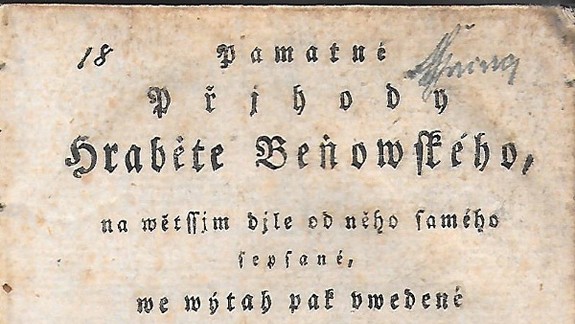 18
Pamatné
Přjhody
Hraběte Beňowſkého,
na wětſſjm djle od něho ſamého
ſepſané,
we weytah pak vwedené